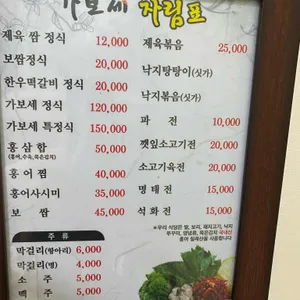 가보세 차림표
제육 쌈 정식 12,000
보쌈정식 20,000
한우떡갈비 정식 20,000
가보세 정식 120,000
가보세 특정식 150,000
홍 삼 합 50,000
(홍어,수육,묵은김치)
홍 어 찜 40,000
홍어사시미 35,000
보 쌈 45,000
주 류
막걸리(항아리) 6,000
막걸리(병) 4,000
소 주 5,000
맥 주 5,000
제육볶음 25,000
낙지탕탕이(싯가)
낙지볶음(싯가)
파 전 10,000
깻잎소고기전 20,000
소고기육전 20,000
명 태 전 15,000
석 화 전 15,000
*우리 식당은 쌀, 보리, 돼지고기, 낙지
쭈꾸미, 양념류, 묵은김치 국내산
홍어 칠레산을 사용합니다.